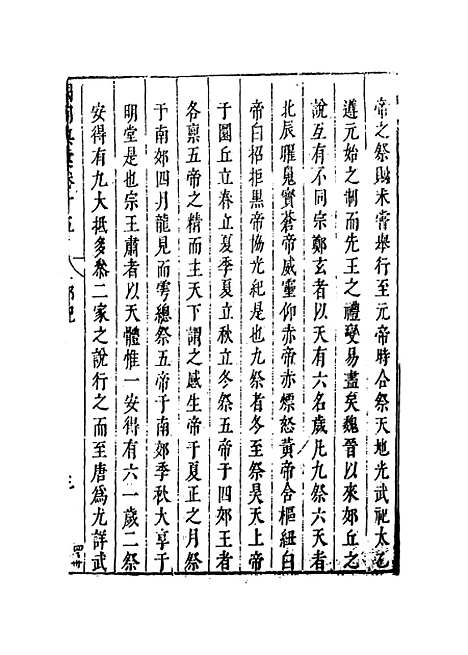 帝之祭則未嘗舉行至元帝時合祭天地光武祀太乙
遵元始之制而先王之禮變易盡矣魏晉以來郊丘之
說互有不同宗鄭玄者以天有六名歲凡九祭六天者
北辰曜䰟寶蒼帝威靈仰赤帝赤熛怒黃帝合樞紐白
帝白招拒黑帝協光紀是也九祭者冬至祭昊天上帝
于圜丘立春立夏季夏立秋立冬祭五帝于四郊王者
各稟五帝之精而主天下謂之感生帝于夏正之月祭
于南郊四月龍見而雩總祭五帝于南郊季秋大享于
明堂是也宗王肅者以天體惟一安得有六一歲二祭
安得有九大抵多叅二家之說行之而至唐爲尤詳武
卷十五
郊祀